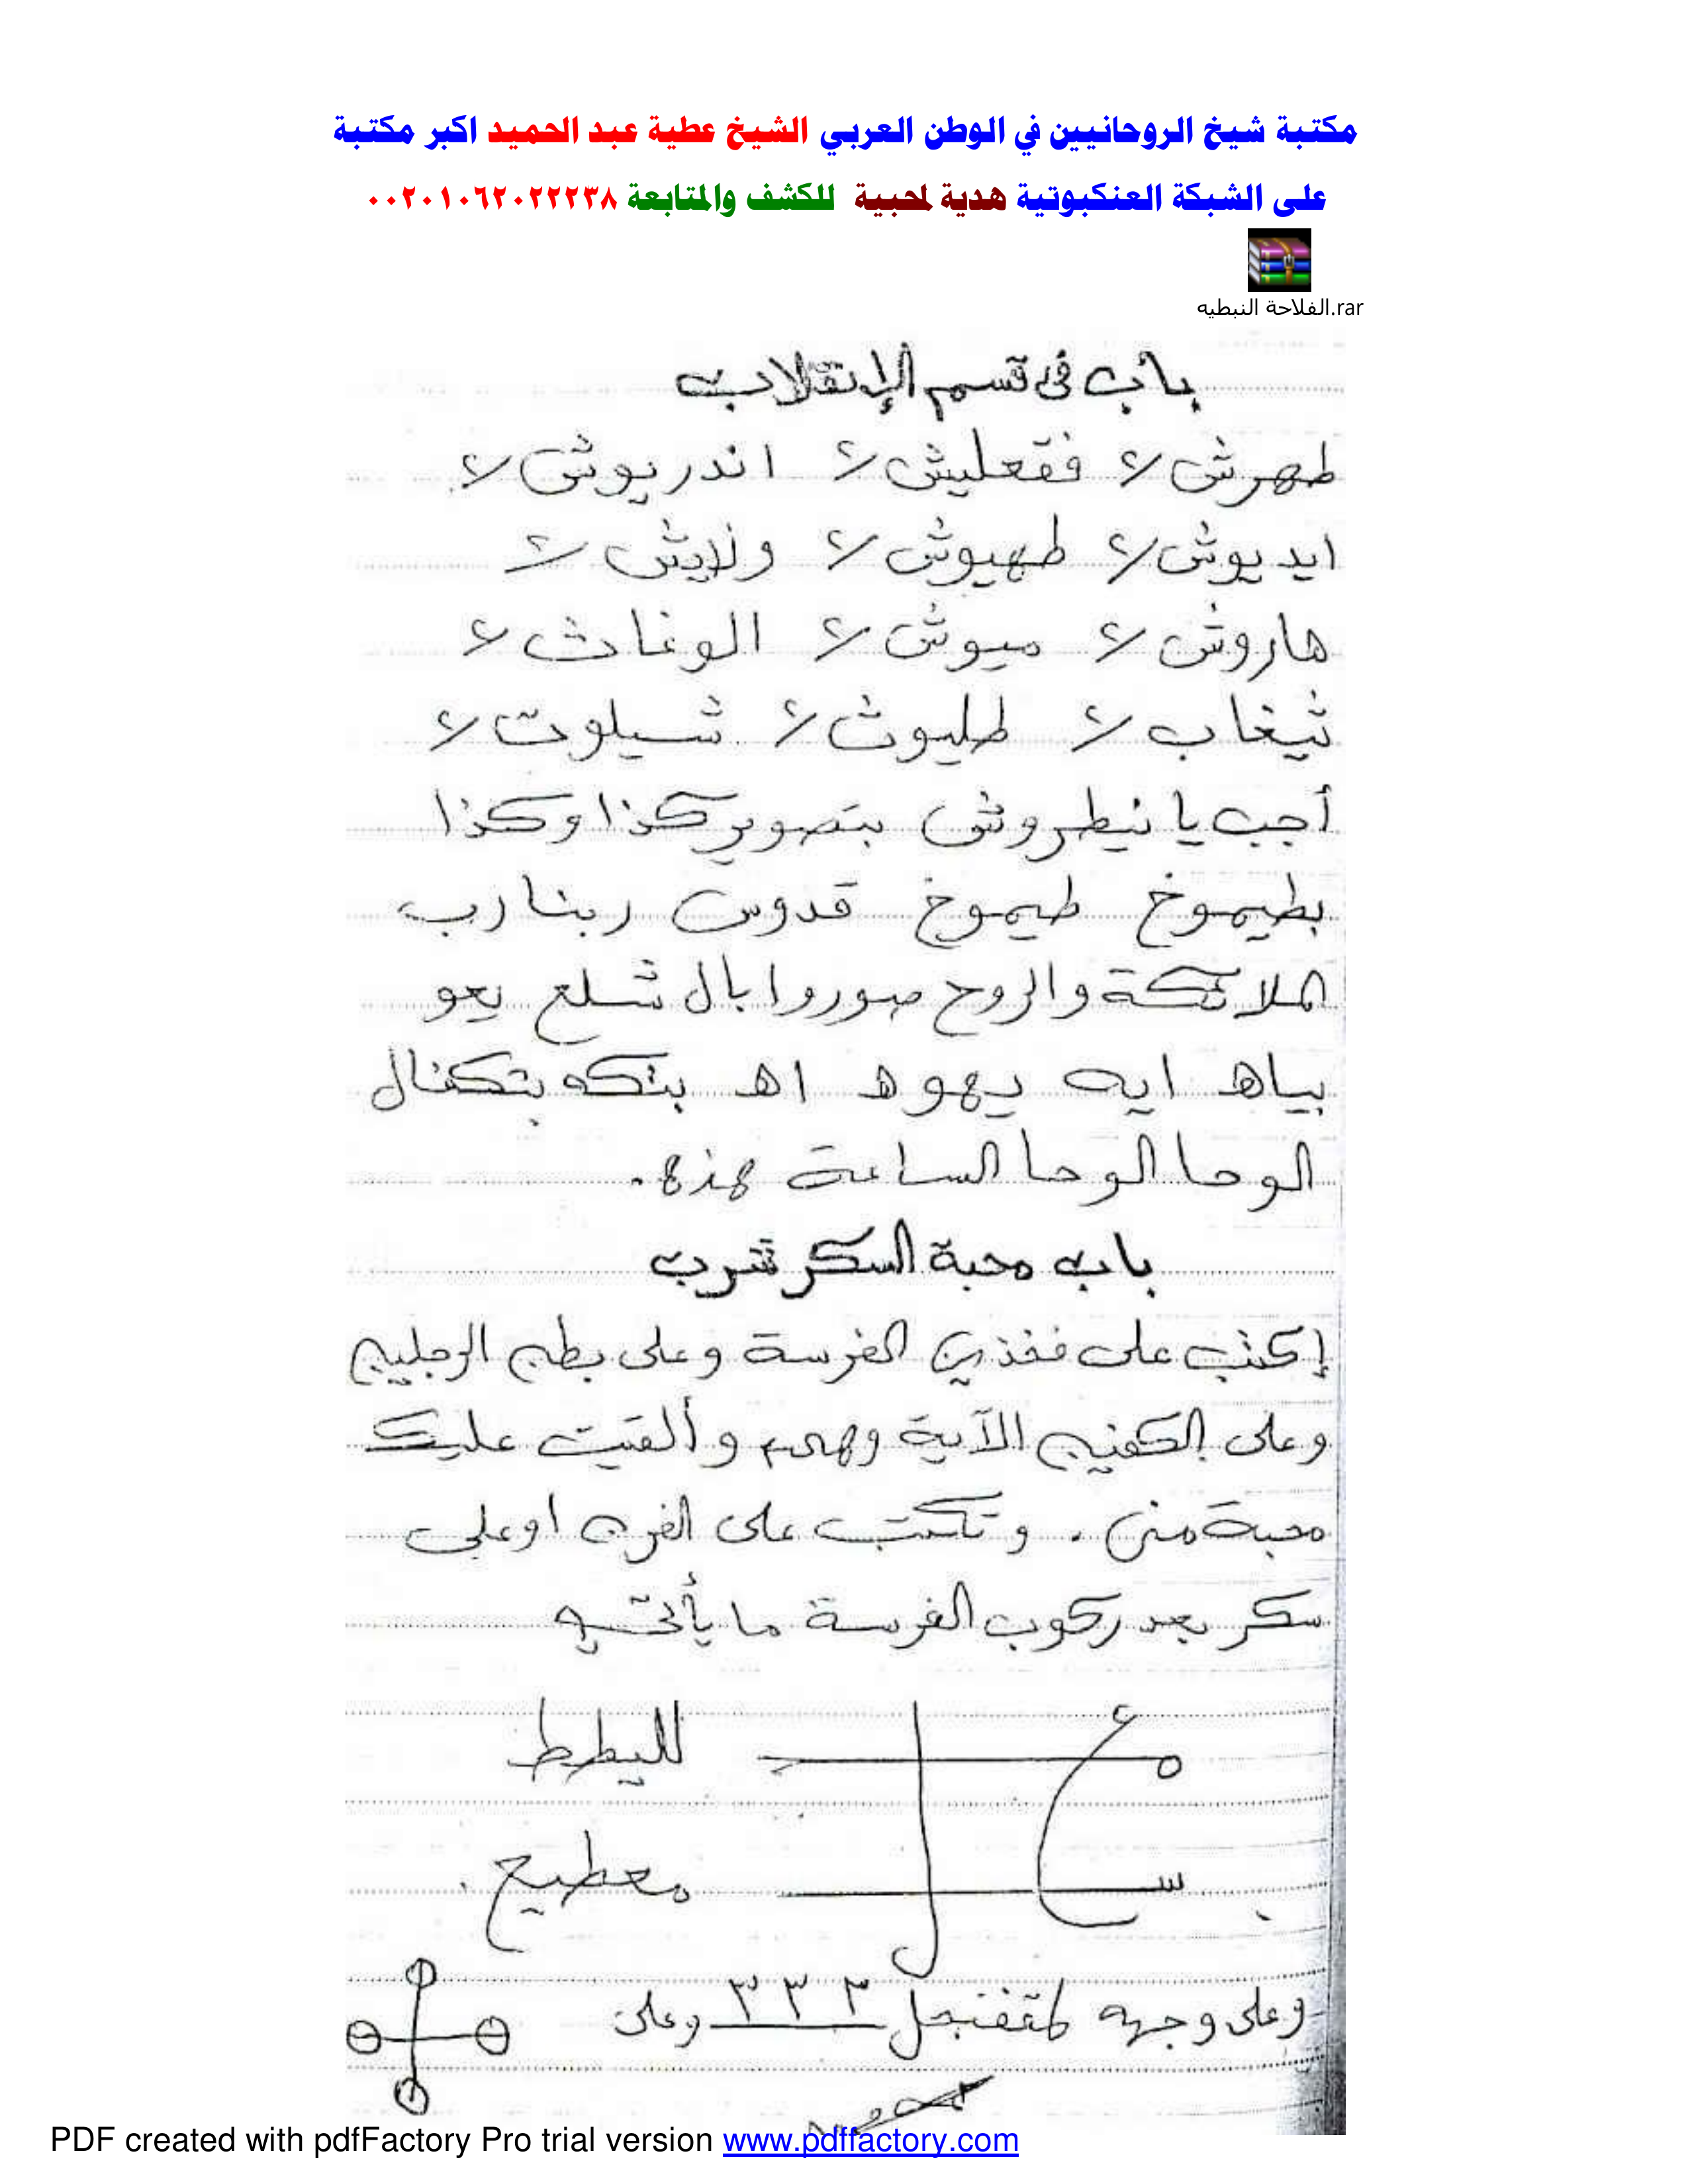 مكتبة شيخ الروحانيين في الوطن العربي الشيخ عطية عبد الحميد اكبر مكتبة
على الشبكة العنكبوتية هدية لمحبية للكشف والمتابعة ٠٠٢٠١٠٦٢٠٢٢٢٣٨
الفلاحة النبطيه.rar
باب فى قسم الإنقلاب
طهرش ٢/ فقعليش ٢/ اندريوش ٢/
ايديوش ٢/ طهيوش ٢/ ولايش ٢/
هاروش ٢/ ميوش ٢/ الوغاث ٢/
ثيغاب ٢/ طليوث ٢/ شيلوت ٢/
أجب يا نيطروش بتصوير كذا وكذا
بطيموخ طيموخ قدوس ربنا رب
الملائكة والروح صوروا بال شلع يعو
بياه ايه يهوه اه بتكه بتكفال
الوحا الوحا الساعة هذه.
باب محبة السكر شرب
إكتب على فخذين الفرسة وعلى بطن الرجلين
وعلى الكفين الآية وهى وألقيت عليك
محبة منى . وتكتب على الفرن او على
سكر بعد ركوب الفرسة ما يأتى
لليطط
معطيع .
وعلى وجهه ٣٣٣ وعلى
PDF created with pdfFactory Pro trial version www.pdffactory.com